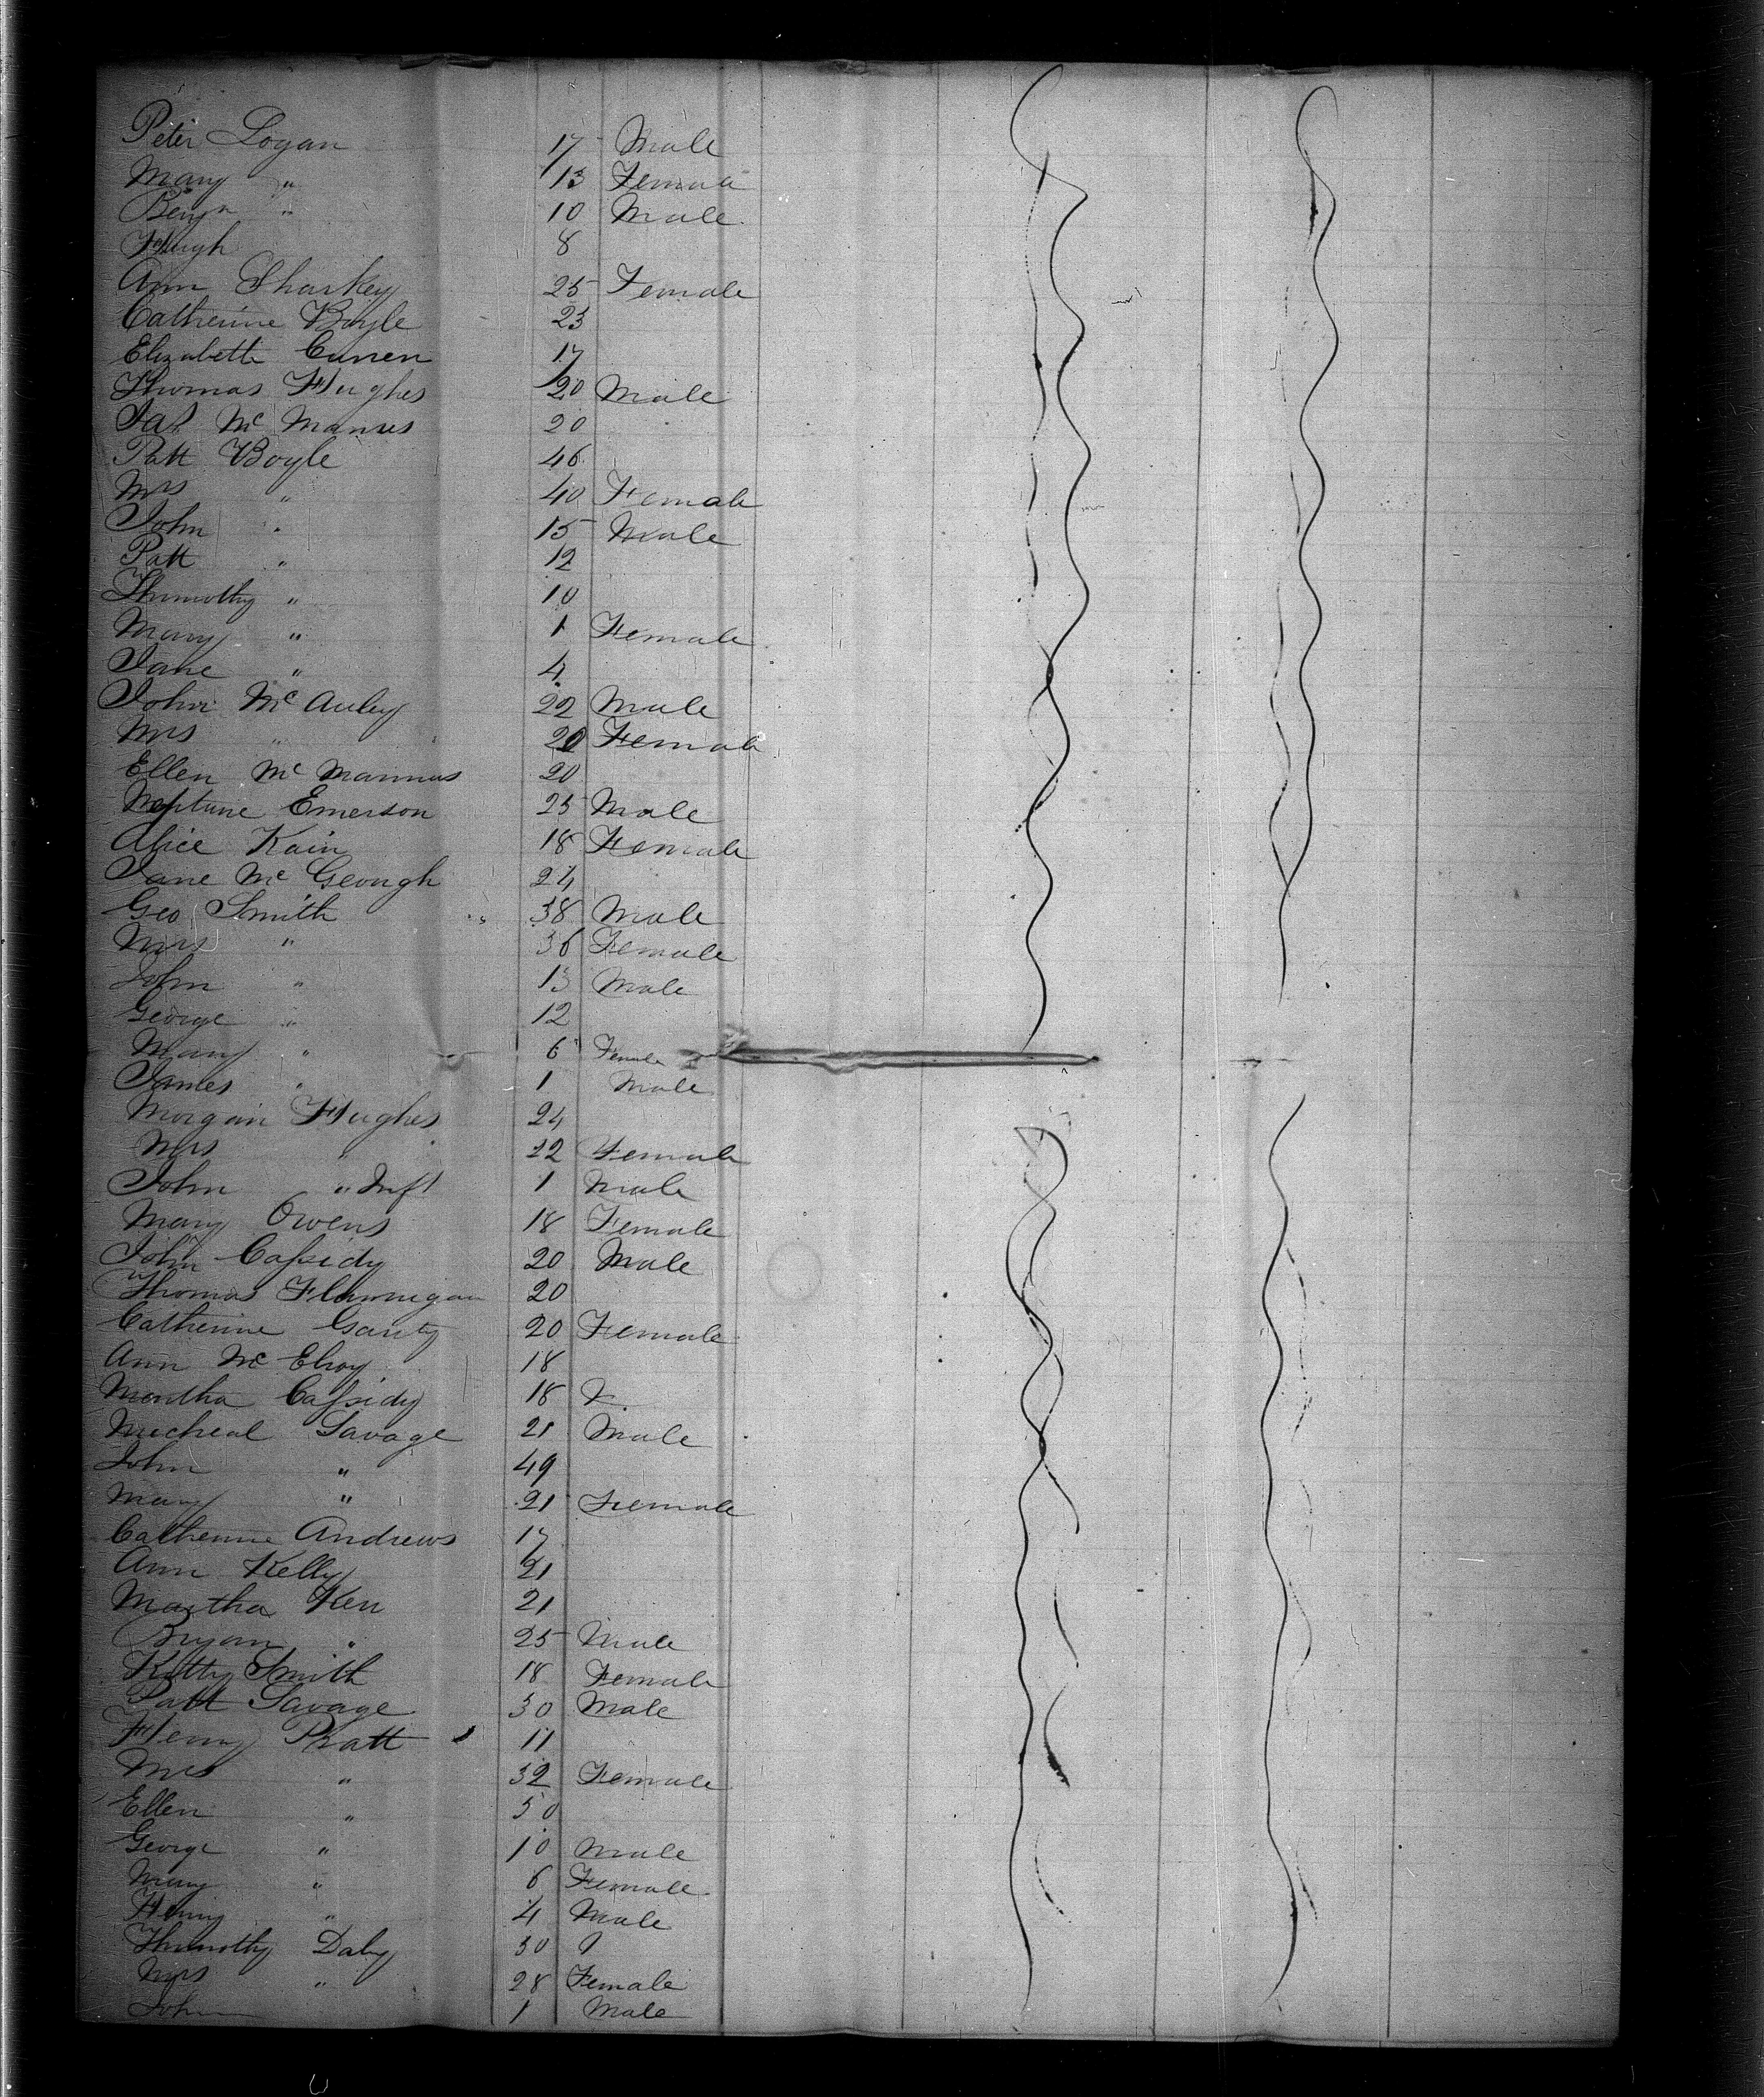 Peter Logan 17 Male
Mary " 13 Female
Benjn " 10 Male
Hugh 8
Ann Sharkey 25 Female
Catherine Boyle 23
Elizabeth Curren 17
Thomas Hughes 20 Male
Jas Mc Manus 20
Patt Boyle 46
Mrs " 40 Female
John " 15 Male
Patt " 12
Thimothy " 10
Mary " 1 Female
Jane " 4
John Mc Auley 22 Male
Mrs " 20 Female
Ellen Mc Mannus 20
Neptune Emerson 25 Male
Alice Kain 18 Female
Jane Mc Geough 24
Geo Smith 38 Male
Mrs " 36 Female
John " 13 Male
George " 12
Mary " 6 Female
James " 1 Male
Morgain Hughes 24
Mrs " 22 Female
John " Inft 1 Male
Mary Owens 18 Female
John Cassidy 20 Male
Thomas Flannigan 20
Catherine Garity 20 Female
Ann Mc Elroy 18
Martha Cassidy 18
Micheal Savage 21 Male
John " 49
Mary " 21 Female
Catherine Andrews 17
Ann Kelly 21
Martha Kerr 21
Bryan " 25 Male
Kitty Smith 18 Female
Patt Savage 30 Male
Henry Pratt 11
Mrs " 32 Female
Ellen " 50
George " 10 Male
Mary " 6 Female
Henry " 4 Male
Thimothy Daly 30
Mrs " 28 Female
John 1 Male